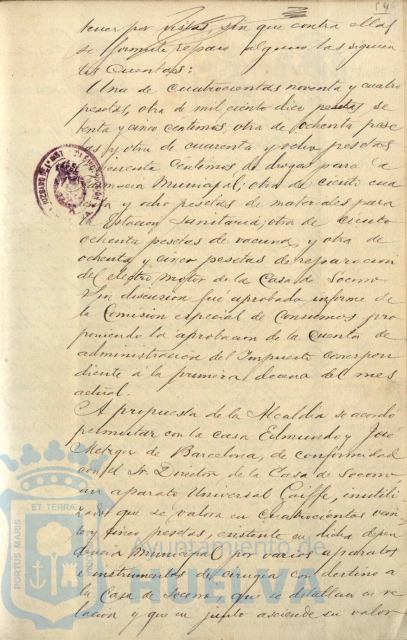 tener por vistas, sin que contra ellas
se formule reparo alguno las siguien
tes Cuentas:
Una de cuatrocientas noventa y cuatro
pesetas, otra de mil ciento diez pesetas se
tenta y cinco centimos, otra de ochenta pese
tas y otra de cuarenta y ocho pesetas
cincuenta centimos de drogas para la
Farmacia Municipal; otra de ciento cua
renta y ocho pesetas de materiales para
la Estacion Sanitaria; otra de ciento
ochenta pesetas de vacuna, y otra de
ochenta y cinco pesetas de reparacion
del electro motor de la Casa de Socorro
Sin discusion fue aprobado informe de
la Comisión especial de Consumos pro
poniendo la aprobacion de la Cuenta de
administración del Impuesto correspon
diente á la primera decena del mes
actual.
A propuesta de la Alcaldia se acordó
permutar con la casa Edmundo y José
Metzger de Barcelona, de conformidad
con el Sr Director de la Casa de Socorro
un aparato Universal Gaiffe, inutili
zado que se valora en cuatrocientos vein
te y cinco pesetas, existente en dicha depen
dencia municipal por varios aparatos
é instrumentos de cirugia con destino a
la Casa de Socorro que se detallan en re
lacion y que en junto asciende su valor
PORTUS MARIS
ET TERRAE
Ayuntamiento de
HUELVA